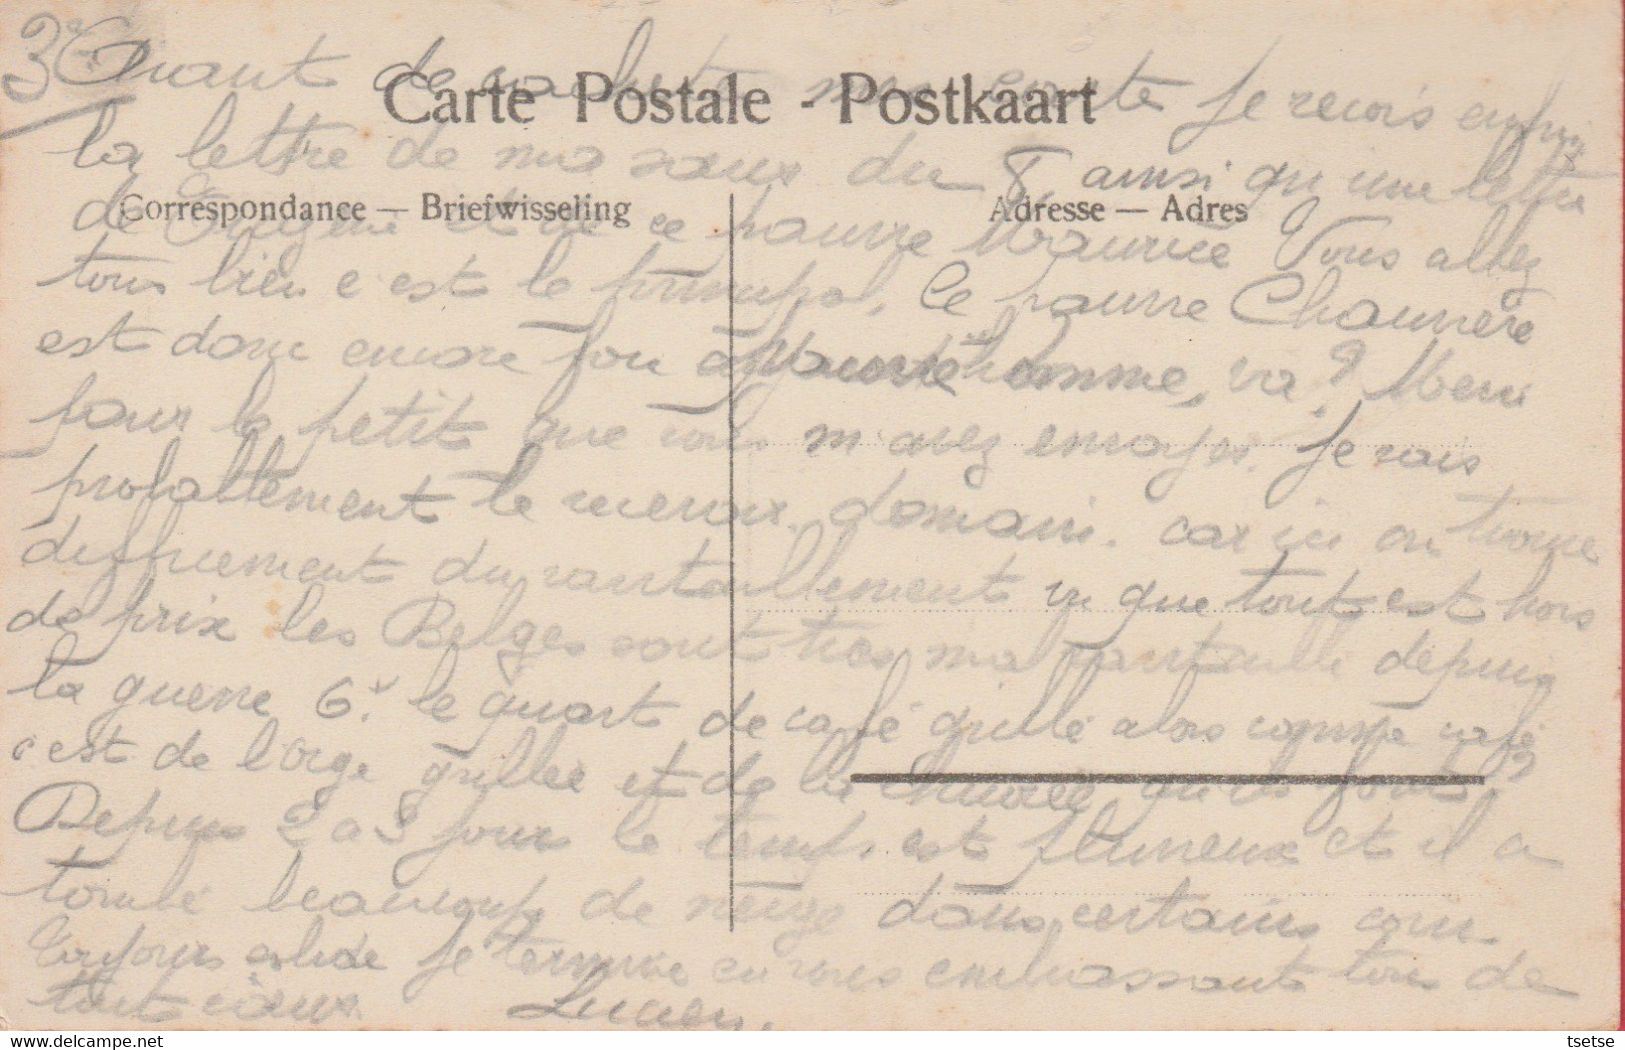 3e
Avant de cacheter ma carte je reçois enfin
Carte Postale - Postkaart
la lettre de ma sœur du 8 ainsi qu'une lettre
Correspondance — Briefwisseling
Adresse — Adres
de Eugène et de ce pauvre Maurice Vous allez
tous bien c est le principal. Ce pauvre
est donc encore fou pauvre homme, va? Merci
pour le petit que vous m'avez envoyes. Je vais
probablement le recevoir demain. car ici on trouve
difficilement du ravitaillement vu que tout est hors
de prix les Belges sont très mal ravitaillé depuis
la guerre 6f. le quart de café grillé alors comme café
c est de l'orge grillée et de la qu'ils font.
Depuis 2 a 3 jour le temps est pluvieux et il a
tombé beaucoup de neige dans certains coin
Toujours solide je termine en vous embrassant tous de
tout cœur Lucien.
tsetse